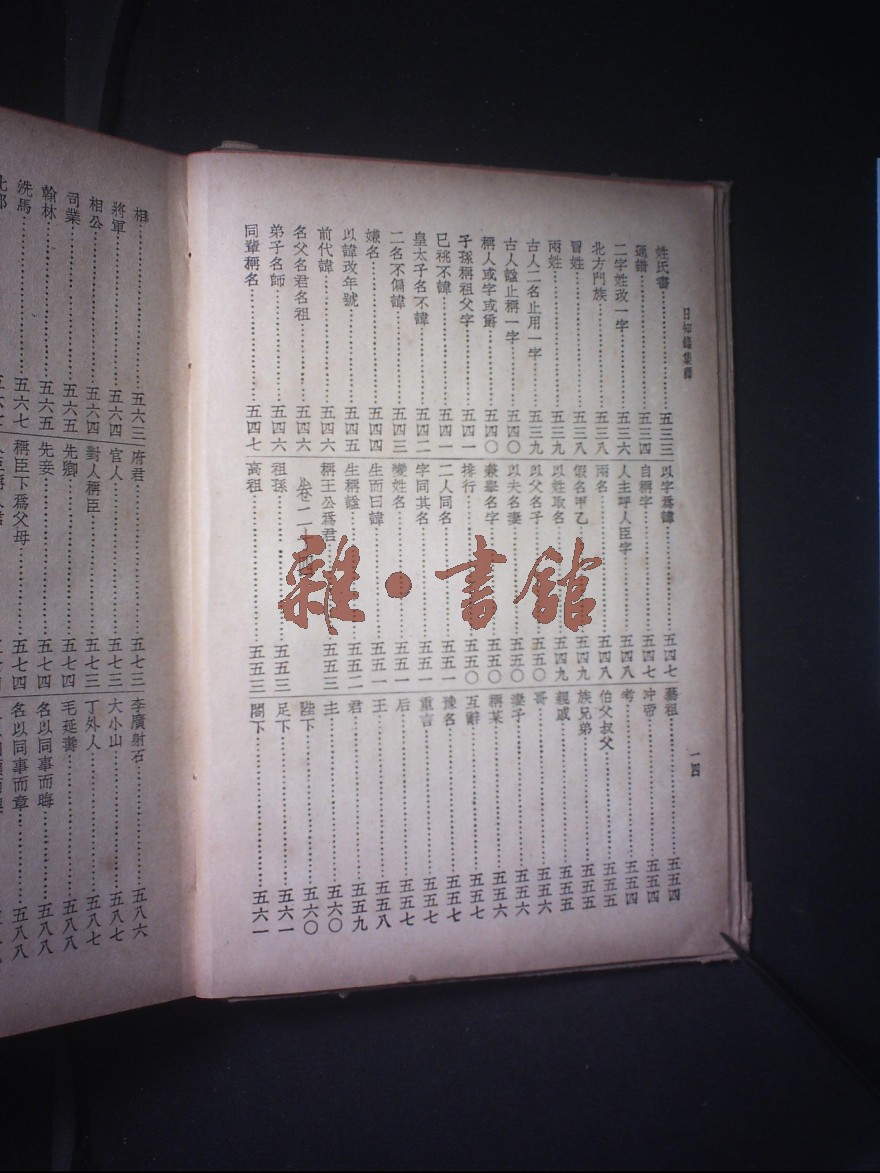 日知錄集釋
一四
姓氏書………五三三
通譜………五三四
二字姓改一字………五三六
北方門族………五三八
冒姓………五三八
兩姓………五三九
古人二名止用一字………五三九
古人謚止稱一字………五四〇
稱人或字或爵………五四〇
子孫稱祖父字………五四一
已祧不諱………五四一
皇太子名不諱………五四二
二名不偏諱………五四三
嫌名………五四四
以諱改年號………五四五
前代諱………五四六
名父名君名祖………五四六
弟子名師………五四六
同輩稱名………五四七
以字爲諱………五四七
自稱字………五四七
人主呼人臣字………五四八
兩名………五四八
假名甲乙………五四九
以姓取名………五四九
以父名子………五五〇
以夫名妻………五五〇
兼舉名字………五五〇
排行………五五〇
二人同名………五五一
字同其名………五五一
變姓名………五五一
生而曰諱………五五一
生稱謚………五五二
稱王公爲君………五五三
卷二十四
祖孫………五五三
高祖………五五三
藝祖………五五四
冲帝………五五四
考………五五四
伯父叔父………五五五
族兄弟………五五五
親戚………五五五
哥………五五六
妻子………五五六
稱某………五五六
互辭………五五七
豫名………五五七
重言………五五七
后………五五七
王………五五八
君………五五九
主………五六〇
陛下………五六〇
足下………五六一
閤下………五六一
相………五六三
將軍………五六四
相公………五六四
司業………五六五
翰林………五六五
洗馬………五六七
府君………五七三
官人………五七三
對人稱臣………五七三
先卿………五七四
先妾………五七四
稱臣下爲父母………五七四
李廣射石………五八六
大小山………五八七
丁外人………五八七
毛延壽………五八八
名以同事而晦………五八八
名以同事而章………五八八
雜·書館